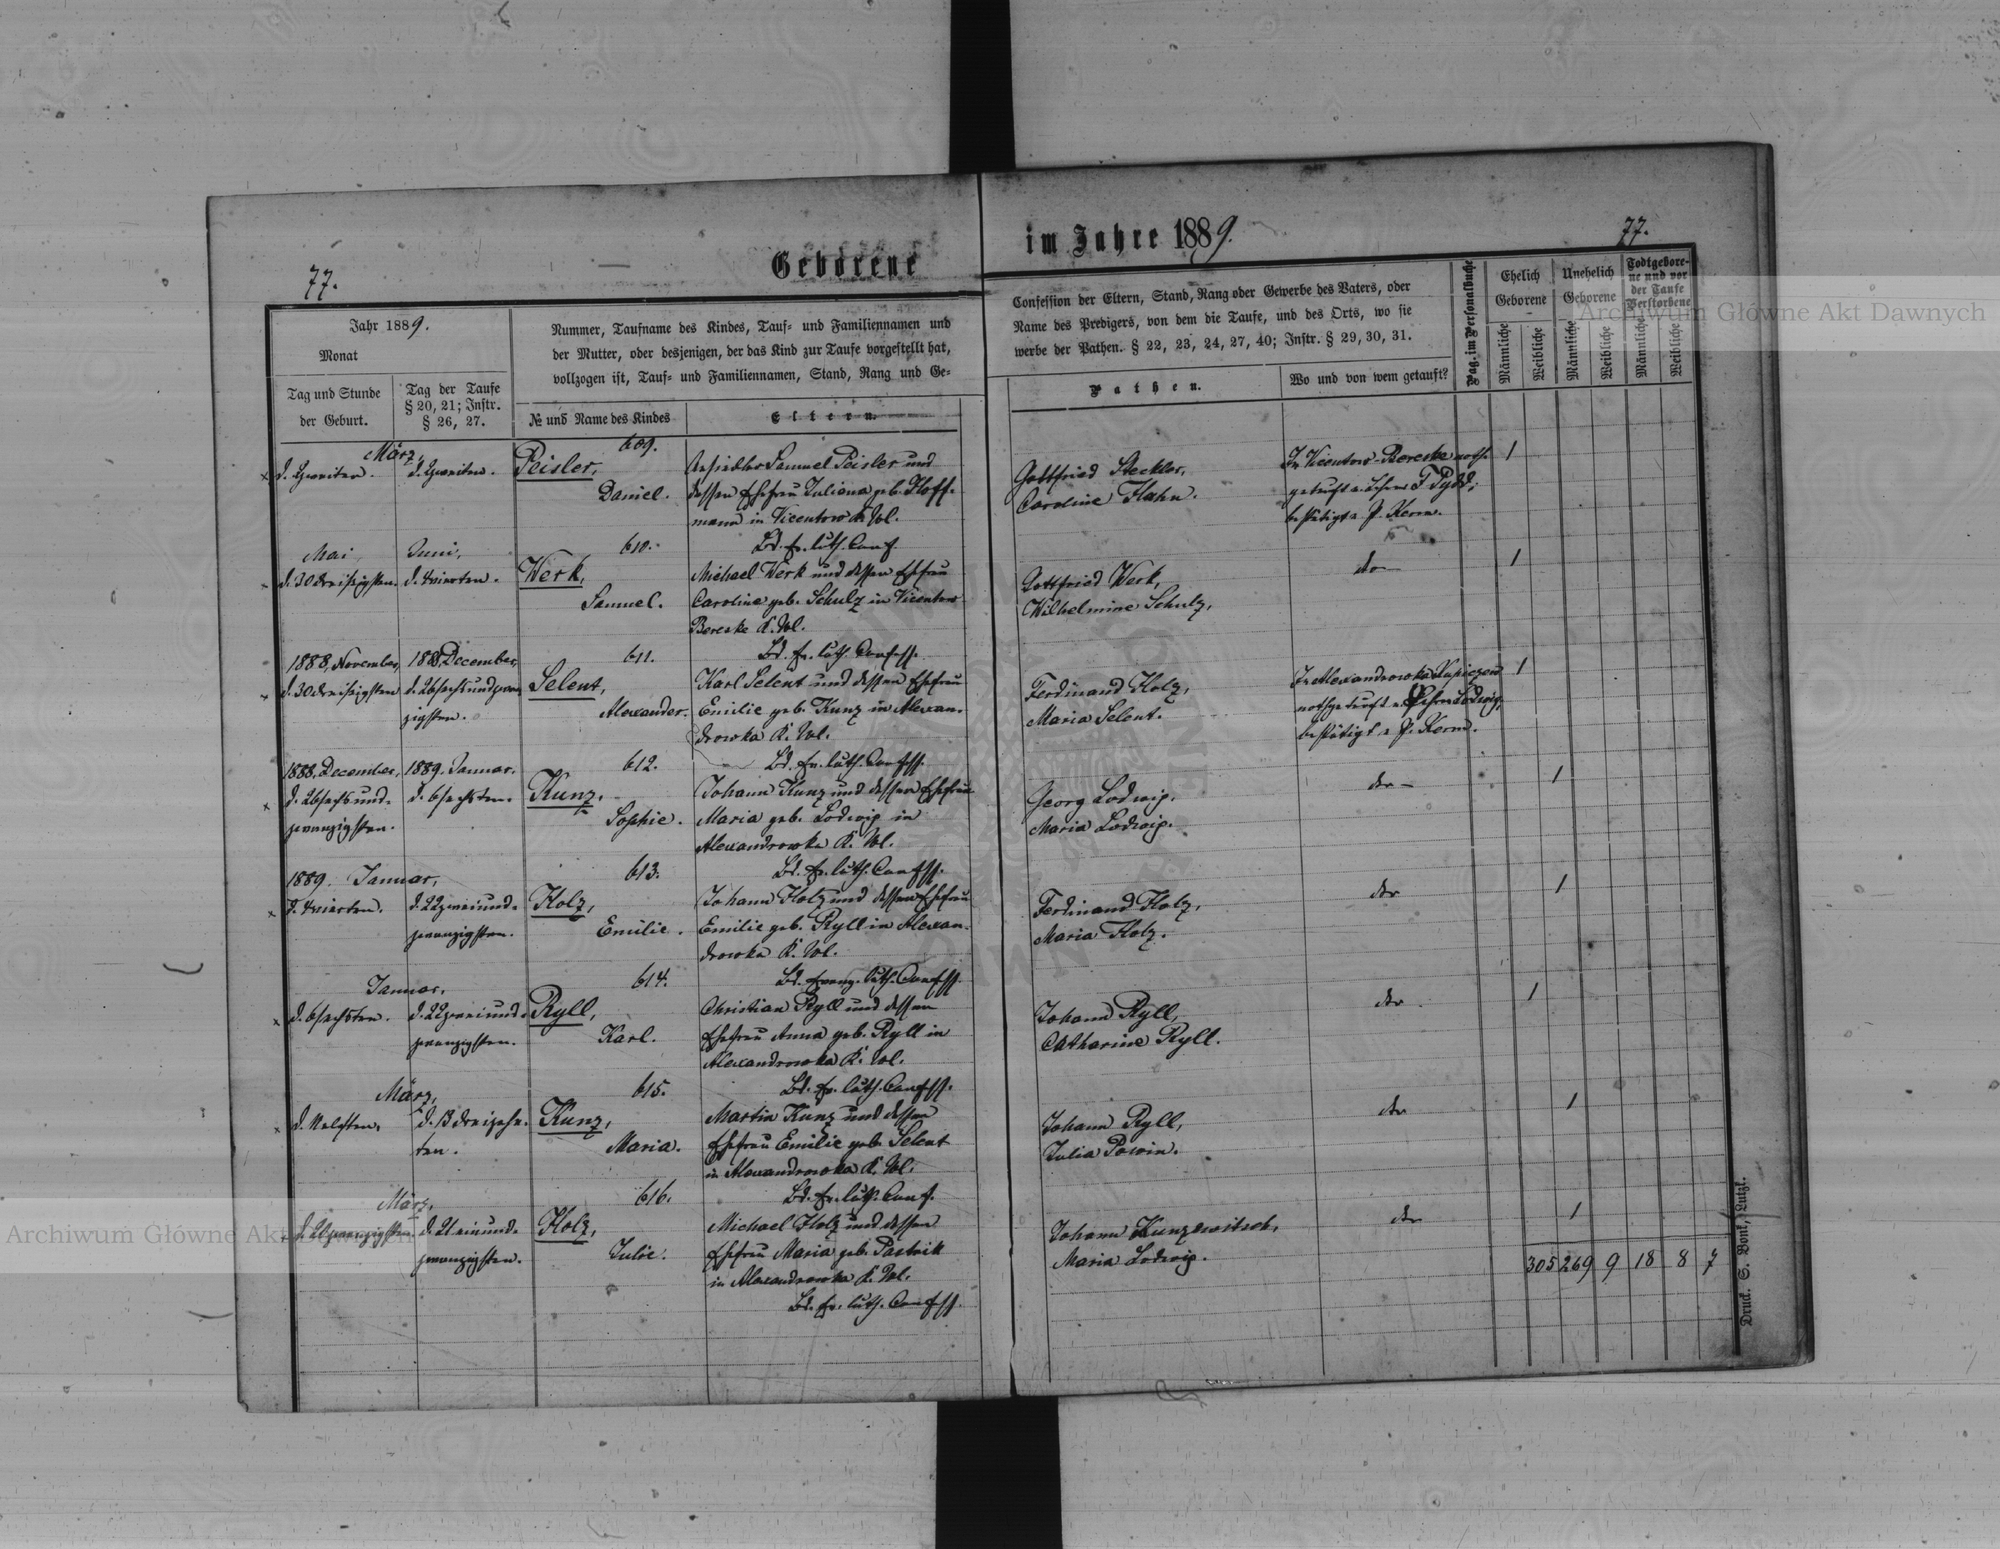 77.
Geborene
im Jahre 1889.
77.
Jahr 1889.
Monat
Tag und Stunde
der Geburt.
Tag der Taufe
§ 20, 21; Instr.
§ 26, 27.
Nummer, Taufname des Kindes, Tauf- und Familiennamen und
der Mutter, oder desjenigen, der das Kind zur Taufe vorgestellt hat,
vollzogen ist, Tauf- und Familiennamen, Stand, Rang und Ge-
№ und Name des Kindes
Eltern.
Confession der Eltern, Stand, Rang oder Gewerbe des Vaters, oder
Name des Predigers, von dem die Taufe, und des Orts, wo sie
werbe der Pathen. § 22, 23, 24, 27, 40; Instr. § 29, 30, 31.
Pathen.
Wo und von wem getauft?
Pag. im Personalbuche
Ehelich
Geborene
Unehelich
Geborene
Todtgebore-
ne und vor
der Taufe
Verstorbene
Männliche
Weibliche
Männliche
Weibliche
Männliche
Weibliche
März,
d. 2zweiten.
d. 2zweiten.
609.
Peisler,
Daniel.
Ansiedler Samuel Peisler und
dessen Ehefrau Juliana geb. Hoff-
mann in Vicentow K. Wol.
Bd. ev. luth. Conf.
Gottfried Steckler,
Caroline Hahn.
In Vicentow-Bereske noth-
getauft
bestätigt v. P. Kerm.
1
Mai
d. 30 dreißigsten.
Juni,
d. 4vierten.
610.
Werk,
Samuel.
Michael Werk und dessen Ehefrau
Caroline geb. Schulz in Vicentow-
Bereske K. Wol.
Bd. ev. luth. Confess.
Gottfried Werk,
Wilhelmine Schulz.
do
1
1888, November,
d. 30 dreißigsten
1888 December,
d. 26sechsundzwan-
zigsten.
611.
Selent,
Alexander.
Karl Selent und dessen Ehefrau
Emilie geb. Kunz in Alexan-
drowka K. Wol.
Bd. ev. luth. Confess.
Ferdinand Holz,
Maria Selent.
In Alexandrowka-Kupiczow
nothgetauft v. Lehrer Lodwig,
bestätigt v. P. Kerm.
1
1888, December,
d. 26sechsund-
zwanzigsten.
1889. Januar.
d. 6sechsten.
612.
Kunz,
Sophie.
Johann Kunz und dessen Ehefrau
Maria geb. Lodwig in
Alexandrowka K. Wol.
Bd. ev. luth. Confess.
Georg Lodwig.
Maria Lodwig.
do
1
1889. Januar,
d. 4vierten.
d. 22zweiund-
zwanzigsten.
613.
Holz,
Emilie.
Johann Holz und dessen Ehefrau
Emilie geb. Ryll in Alexan-
drowka K. Wol.
Bd. evang. luth. Confess.
Ferdinand Holz,
Maria Holz.
do
1
Januar.
d. 6sechsten.
d. 22zweiund-
zwanzigsten.
614.
Ryll,
Karl.
Christian Ryll und dessen
Ehefrau Anna geb. Ryll in
Alexandrowka K. Wol.
Bd. ev. luth. Confess.
Johann Ryll,
Catharine Ryll.
do
1
März,
d. 11elften.
d. 13 dreizehn-
ten.
615.
Kunz,
Maria.
Martin Kunz und dessen
Ehefrau Emilie geb. Selent
in Alexandrowka K. Wol.
Bd. ev. luth. Conf.
Johann Ryll,
Julia
do
1
März,
d. 20zwanzigsten
d. 21 einund-
zwanzigsten.
616.
Holz,
Julie.
Michael Holz und dessen
Ehefrau Maria geb. Pastrik
in Alexandrowka K. Wol.
Bd. ev. luth. Confess.
Johann Kunzewitsch,
Maria Lodwig.
do
1
305 269 9 18 8 7
Druck. S. Bonk, Lutzk.
Archiwum Główne Akt Dawnych
Archiwum Główne Akt Dawnych